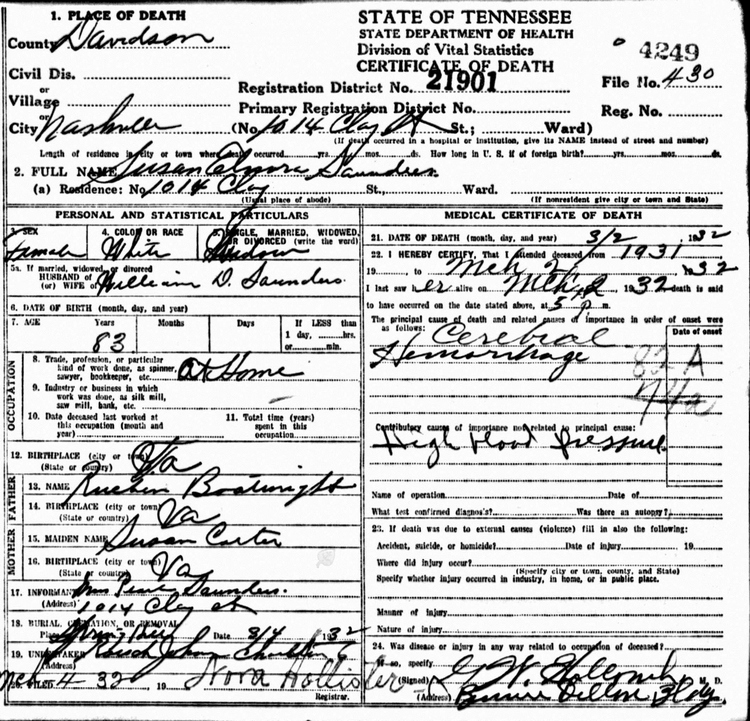 1. PLACE OF DEATH
County Davidson
Civil Dis.
or
Village
or
City Nashville
STATE OF TENNESSEE
STATE DEPARTMENT OF HEALTH
Division of Vital Statistics
CERTIFICATE OF DEATH
4249
Registration District No. 21901
File No. 430
Primary Registration District No.
Reg. No.
(No. 1014 Clay St St.; Ward)
(If death occurred in a hospital or institution, give its NAME instead of street and number)
Length of residence in city or town where death occurred yrs. mos. ds. How long in U. S. if of foreign birth? yrs. mos. ds.
2. FULL NAME Susan Elmore Saunders
(a) Residence: No. 1014 Clay St., Ward.
(Usual place of abode) (If nonresident give city or town and State)
PERSONAL AND STATISTICAL PARTICULARS
3. SEX 4. COLOR OR RACE 5. SINGLE, MARRIED, WIDOWED, OR DIVORCED (write the word)
Female White Widow
5a. If married, widowed, or divorced
HUSBAND OF
(or) WIFE OF William D. Saunders
6. DATE OF BIRTH (month, day, and year)
7. AGE Years Months Days If LESS than 1 day, hrs. or min.
83
OCCUPATION
8. Trade, profession, or particular kind of work done, as spinner, sawyer, bookkeeper, etc. At Home
9. Industry or business in which work was done, as silk mill, saw mill, bank, etc.
10. Date deceased last worked at this occupation (month and year)
11. Total time (years) spent in this occupation
12. BIRTHPLACE (city or town) (State or country) Va
FATHER
13. NAME Rueben Boatwright
14. BIRTHPLACE (city or town) (State or country) Va
MOTHER
15. MAIDEN NAME Susan Carter
16. BIRTHPLACE (city or town) (State or country) Va
17. INFORMANT Mrs Saunders.
(Address) 1014 Clay st
18. BURIAL, CREMATION, OR REMOVAL
Place Spring Date 3/4 1932
19. UNDERTAKER
(Address)
20. FILED Mch 4 32 19 Nora Hollister
Registrar.
MEDICAL CERTIFICATE OF DEATH
21. DATE OF DEATH (month, day, and year) 3/2 1932
22. I HEREBY CERTIFY, That I attended deceased from 1931
19 to Mch 2 1932
I last saw her alive on Mch 2 1932 death is said
to have occurred on the date stated above, at 5 p m.
The principal cause of death and related causes of importance in order of onset were as follows:
Date of onset
Cerebral
Hemorrhage
82 A
Contributory causes of importance not related to principal cause:
High blood pressure
Name of operation Date of
What test confirmed diagnosis? Was there an autopsy?
23. If death was due to external causes (violence) fill in also the following:
Accident, suicide, or homicide? Date of injury 19
Where did injury occur?
(Specify city or town, county, and State)
Specify whether injury occurred in industry, in home, or in public place.
Manner of injury
Nature of injury
24. Was disease or injury in any way related to occupation of deceased?
If so, specify
(Signed) G W Holcomb M. D.
(Address) Bldg